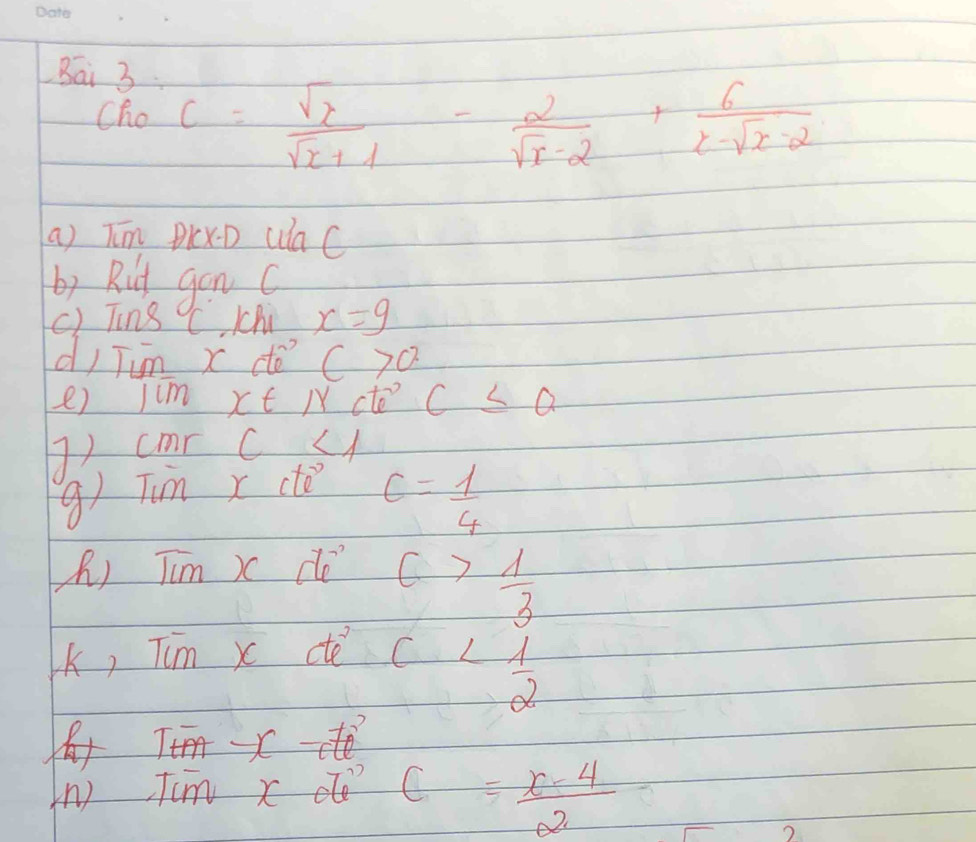 Date
Bài 3:
Cho C = √x/(√x + 1) - 2/(√x - 2) + 6/(x - √x - 2)
a) Tìm ĐKXĐ của C
b) Rút gọn C
c) Tính C khi x = 9
d) Tìm x để C > 0
e) Tìm x ∈ N để C ≤ 0
f) cmr C < 1
g) Tìm x để C = 1/4
h) Tìm x để C > 1/3
k, Tìm x để C < 1/2
h) Tìm x để
n) Tìm x để C = (x - 4)/2